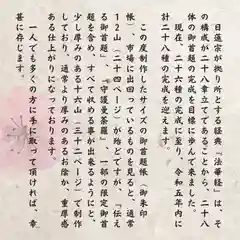 日蓮宗が拠り所とする経典『法華経』は、そ
の構成が二十八章立てであることから、二十八
体の御首題の完成を目標に歩んで来ました。
現在、二十六種の完成に至り、令和五年内に
計二十八種の完成を迎えます。
この度制作したサイズの御首題帳（御朱印
帳）、市場に出回っているものを見ると、通常
12山（二十四ページ）が殆どですが、「伝え
る御首題」、「守護曼荼羅」、一部の限定御首
題を含め、すべて収める事が出来るようにと、
少し厚みのある十六山（三十二ページ）で制作
しており、通常より厚みのあるお陰か、重厚感
がある仕上がりになっております。
一人でも多くの方に手に取って頂ければ、幸
甚に存じます。